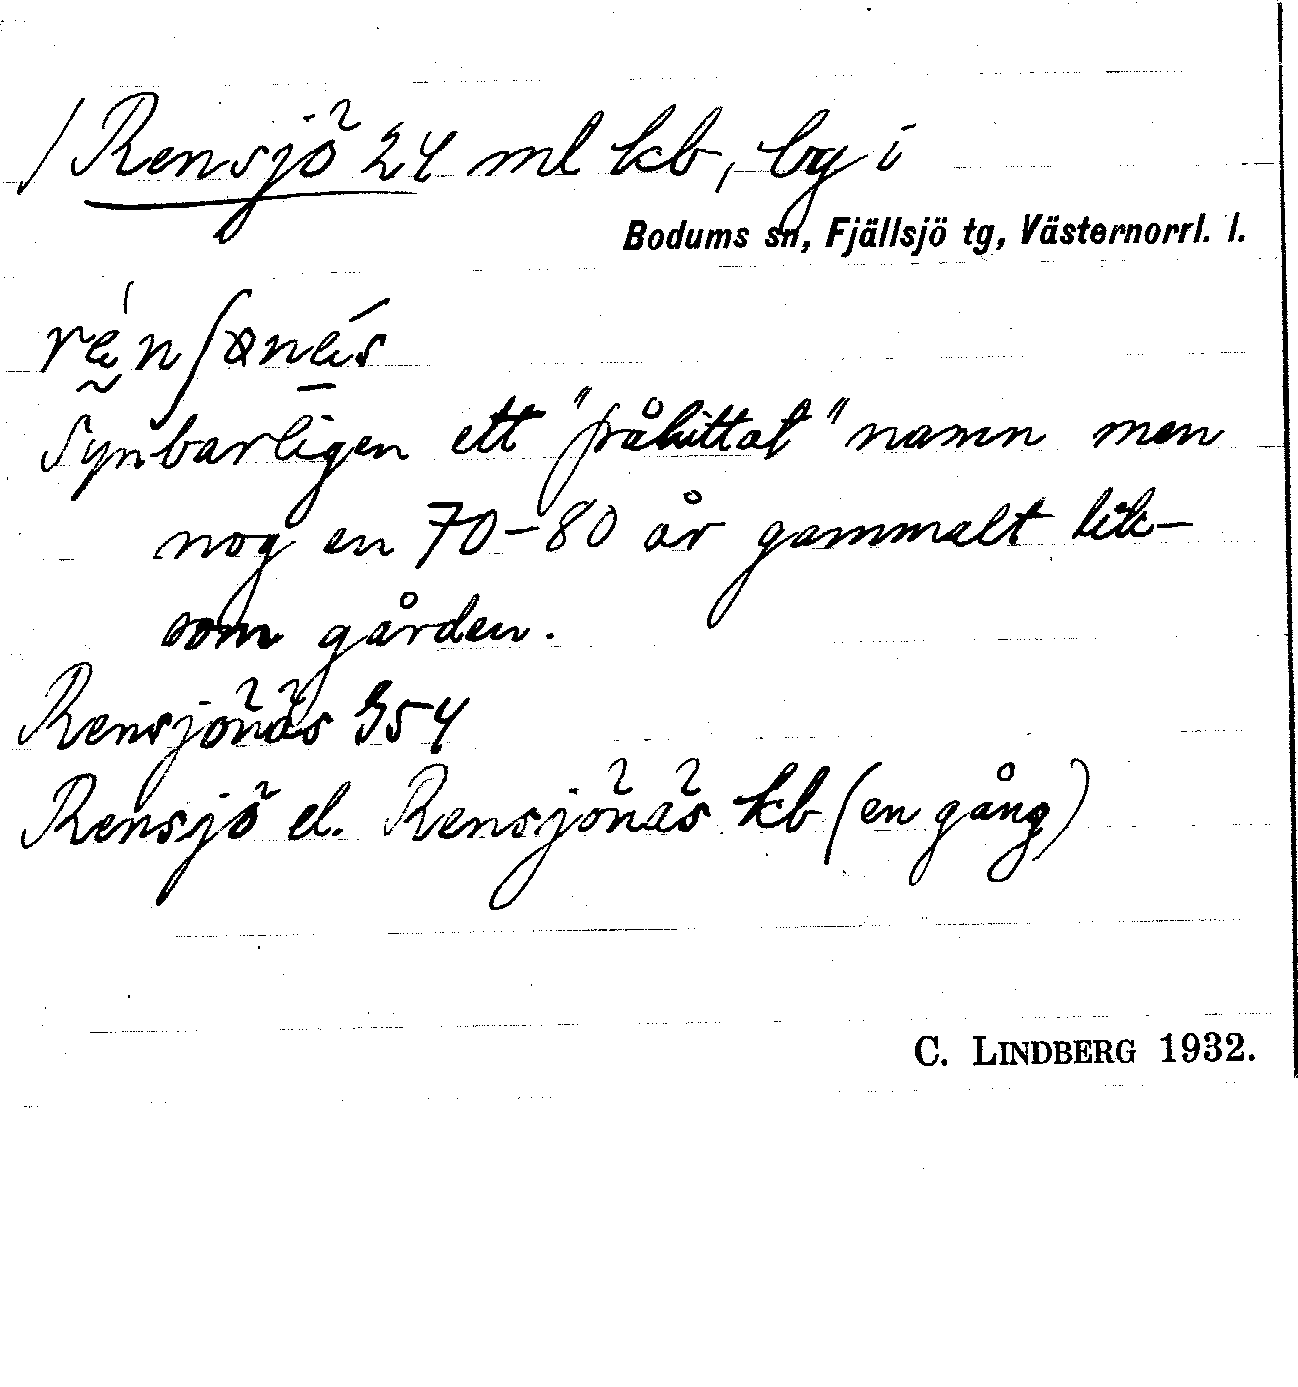 / Rensjö 24 ml kb, by i
Bodums sn, Fjällsjö tg, Västernorrl. l.
Synbarligen ett "påhittat" namn men
nog en 70-80 år gammalt lik-
som gården.
Rensjönäs 354
Rensjö el. Rensjönäs kb (en gång)
C. LINDBERG 1932.